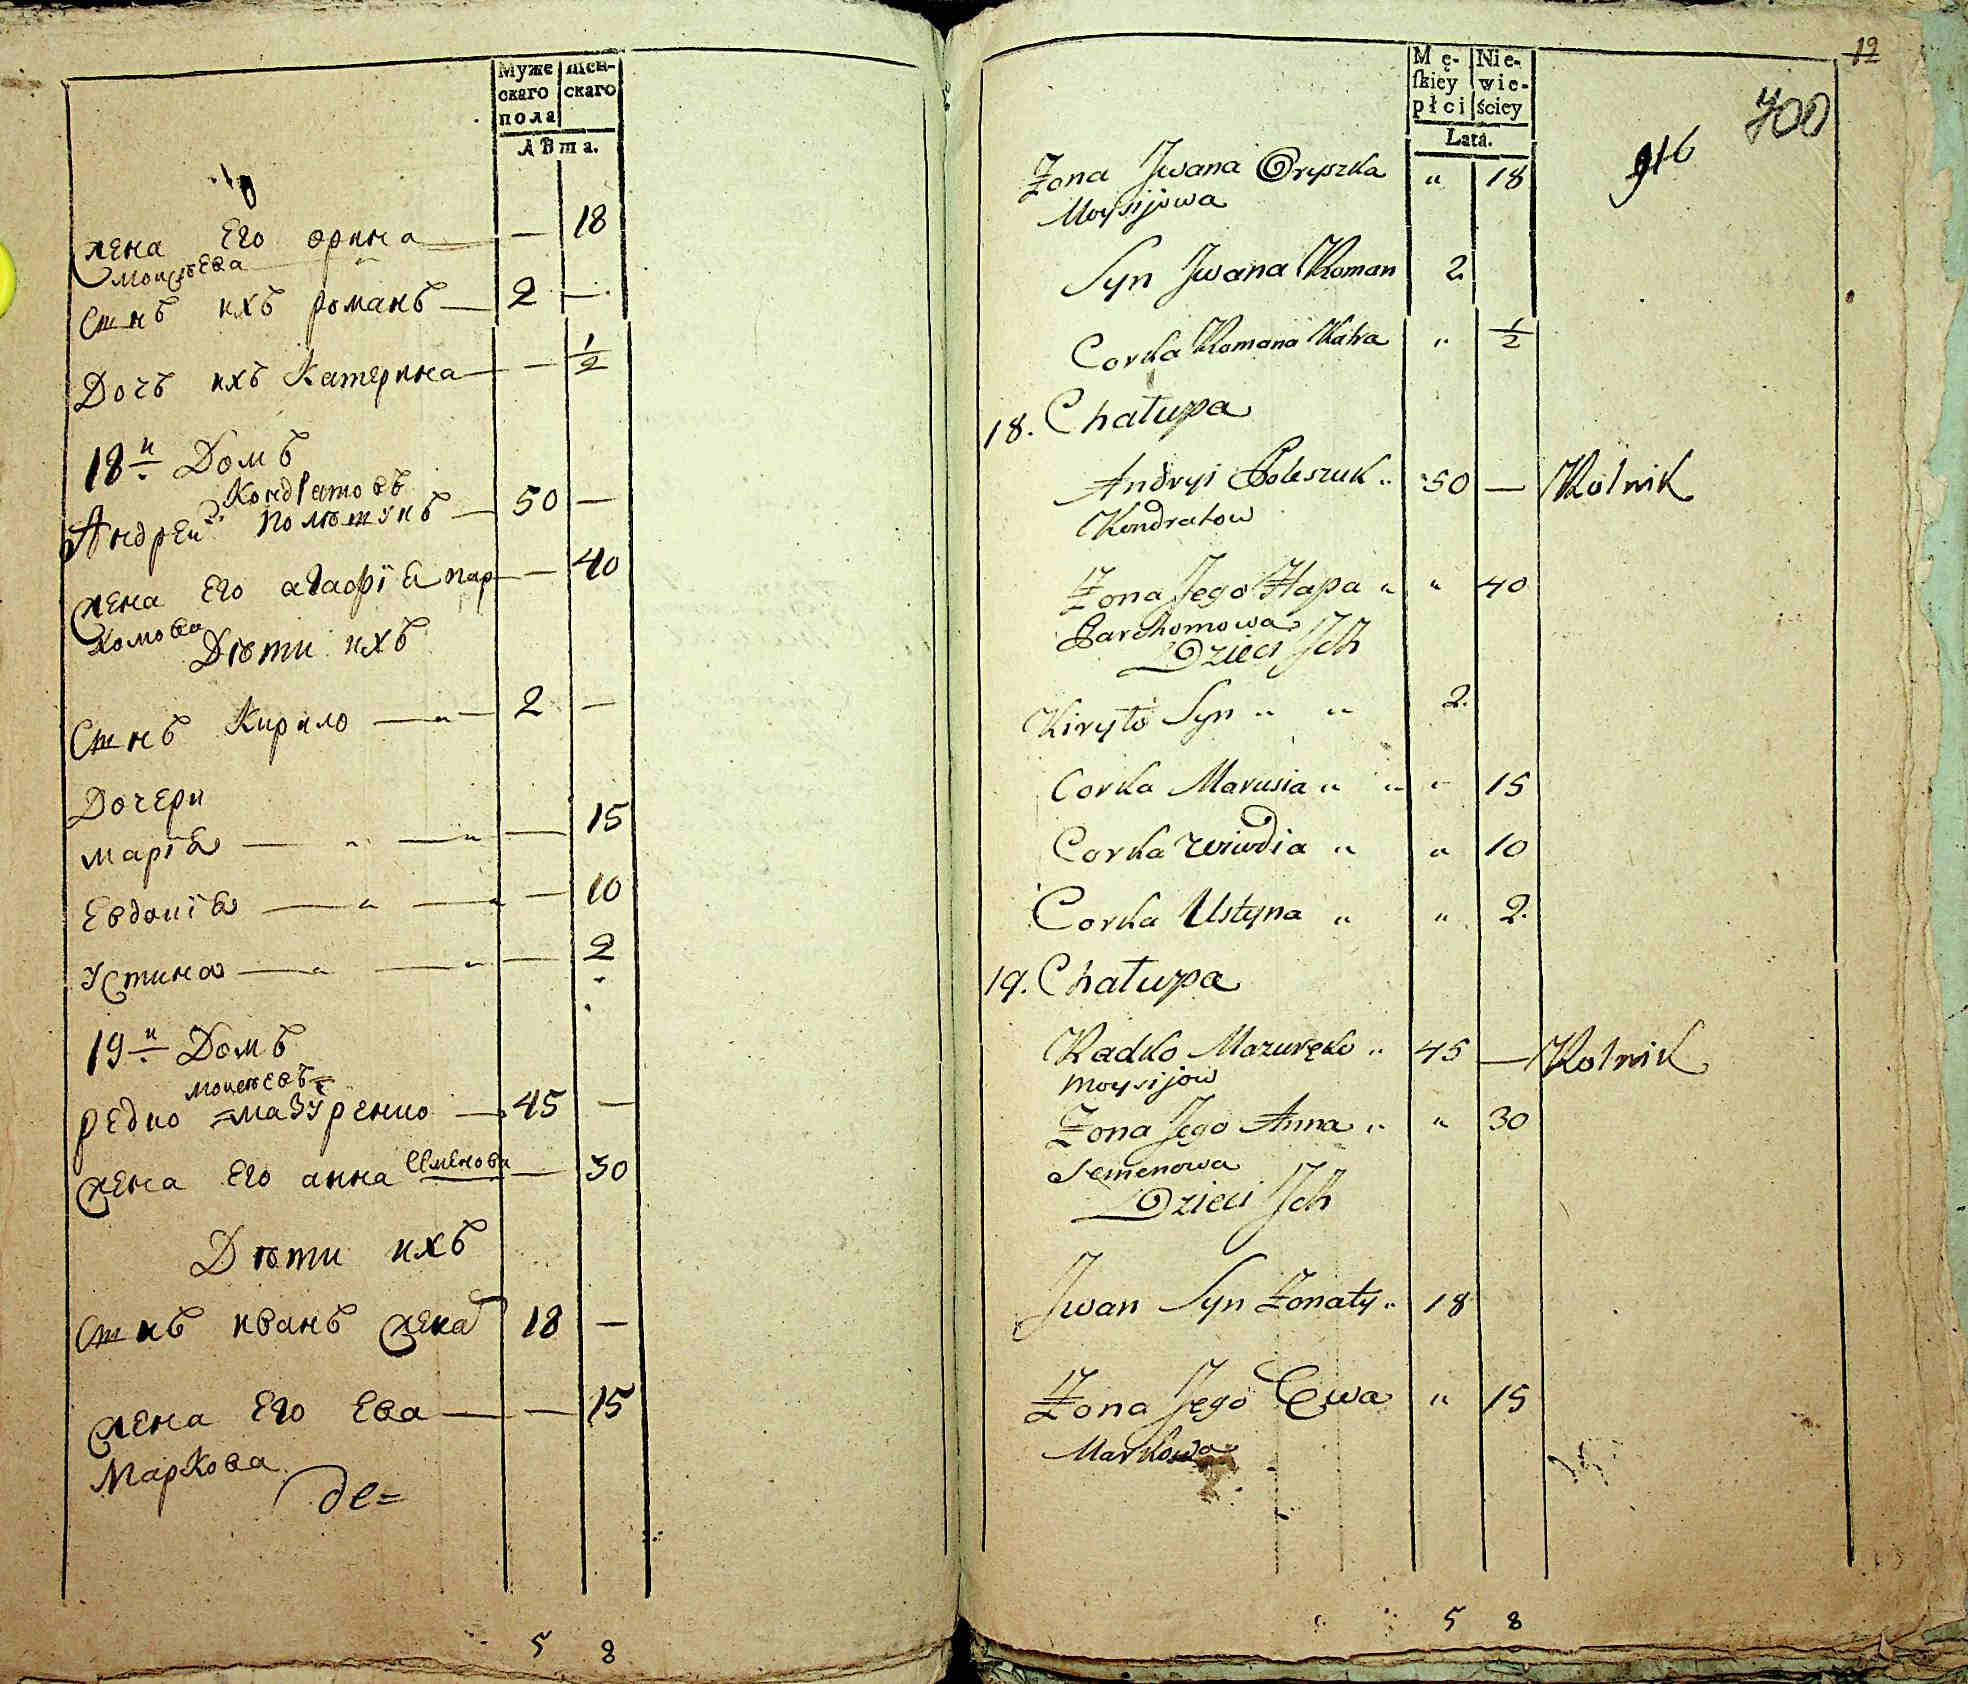 Муже
скаго
пола
жен-
скаго
Лѣта.
жена Его орина — 18
Моисѣева
Сынъ ихъ романъ 2 —
Дочъ ихъ Катерина — 1/2
18й Домъ
Кондратовъ
Андрей Полѣтунъ 50 —
жена Его агафія пар — 40
комова
Дѣти ихъ
Сынъ Кирило 2 —
Дочери
марія — 15
Евдокія — 10
устина — 2
19й Домъ
моисѣевъ
редко мазуренко 45 —
жена Его анна Семенова — 30
Дѣти ихъ
Сынъ иванъ жена 18 —
жена Его Ева — 15
Маркова
де=
5 8
12
Mę-
skiey
płci
Nie-
wie-
ściey
Lata.
700
916
Zona Jwana Oryszka „ 18
Moysijowa
Syn Jwana Roman 2
Corka Romana Katra „ 1/2
18. Chałupa
Andryi Poleszuk „ 50 — Rolnik
Kondratow
Zona Jego Hapa „ „ 40
Parchomowa
Dzieci Jch
Kiryło Syn „ „ 2.
Corka Marusia „ „ „ 15
Corka Wiwdia „ „ 10
Corka Ustyna „ „ 2.
19. Chałupa
Radko Mazuręko „ 45 — Rolnik
Moysijow
Zona Jego Anna „ „ 30
Semenowa
Dzieci Jch
Jwan Syn Zonaty „ 18
Zona Jego Ewa „ 15
Markowa
5 8